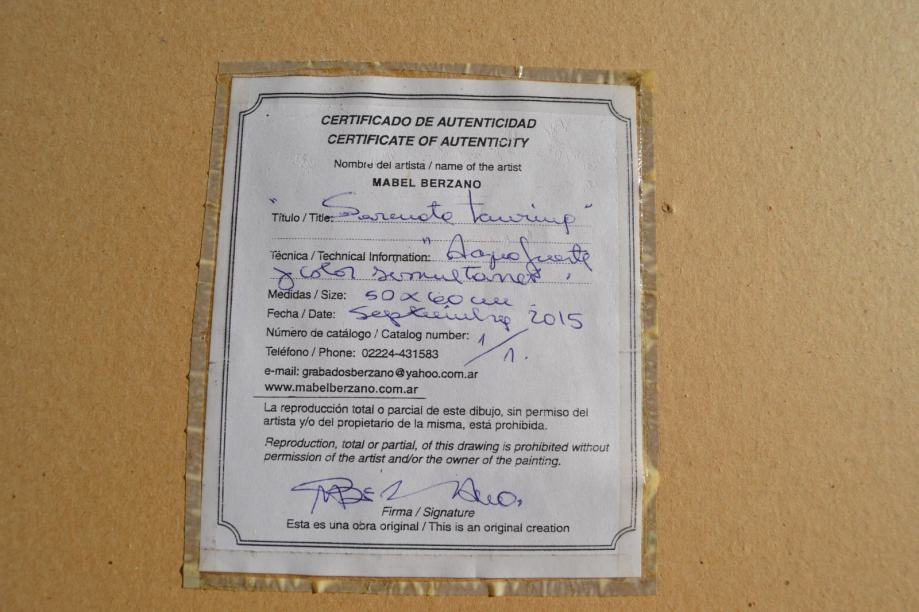 CERTIFICADO DE AUTENTICIDAD
CERTIFICATE OF AUTENTICITY
Nombre del artista / name of the artist
MABEL BERZANO
Título / Title:
Técnica / Technical Information: "Aguafuerte
y color simultaneo".
Medidas / Size: 50 x 60 cm
Fecha / Date: Septiembre 2015
Número de catálogo / Catalog number: 1/1.
Teléfono / Phone: 02224-431583
e-mail: grabadosberzano@yahoo.com.ar
www.mabelberzano.com.ar
La reproducción total o parcial de este dibujo, sin permiso del
artista y/o del propietario de la misma, está prohibida.
Reproduction, total or partial, of this drawing is prohibited without
permission of the artist and/or the owner of the painting.
Firma / Signature
Esta es una obra original / This is an original creation